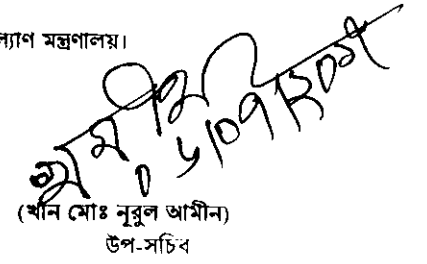 ল্যাণ মন্ত্রণালয়।
(খান মোঃ নূরুল আমীন)
উপ-সচিব